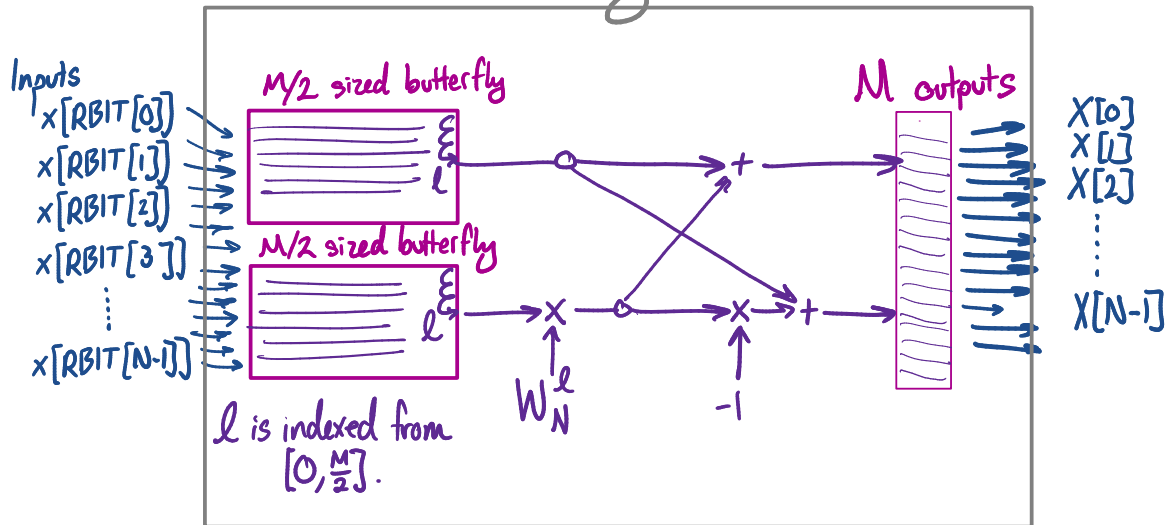 Inputs
x[RBIT[0])
x[RBIT[1])
x[RBIT[2])
x[RBIT[3]]
x[RBIT[N-1]]
M/2 sized butterfly
l
M/2 sized butterfly
l
l is indexed from
[0, M/2].
+
x
W_N^l
x
-1
+
M outputs
X[0]
X[1]
X[2]
X[N-1]